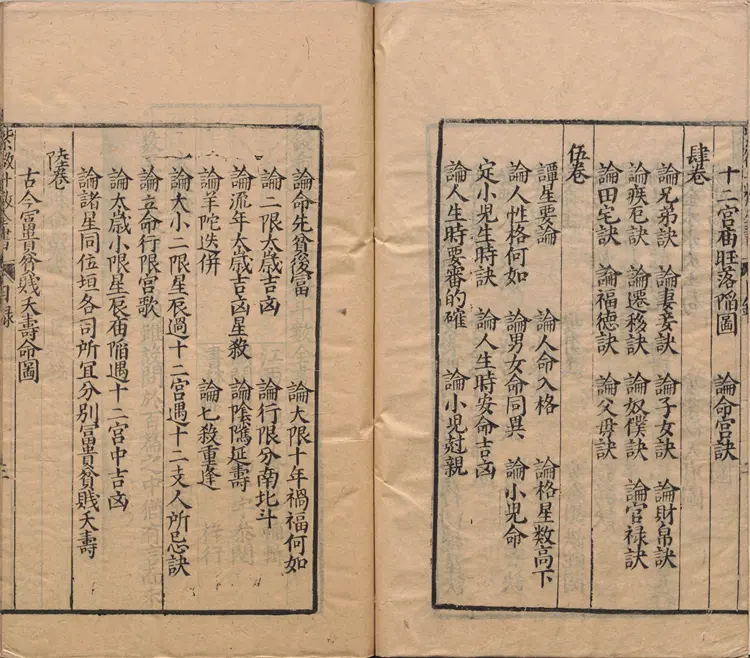 十二宮庙旺落陷圖　論命宮訣
肆卷
論兄弟訣　論妻妾訣　論子女訣　論財帛訣
論疾厄訣　論遷移訣　論奴僕訣　論官禄訣
論田宅訣　論福德訣　論父母訣
伍卷
譚星要論　論人命入格　論格星数高下
論人性格何如　論男女命同異　論小兒命
定小児生時訣　論人生時安命吉凶
論人生時要審的確　論小兒尅親
論命先貧後富　論大限十年禍福何如
論二限太歳吉凶　論行限分南北斗
論流年太歳吉凶星殺　論陰隲延壽
論羊陀迭併　論七殺重逢
論大小二限星辰過十二宮遇十二支人所忌訣
論立命行限宮歌
論太歳小限星辰庙陷遇十二宮中吉凶
論諸星同位垣各司所冝分别富貴貧賎夭壽
陸卷
古今富貴貧賎夭壽命圖
目録